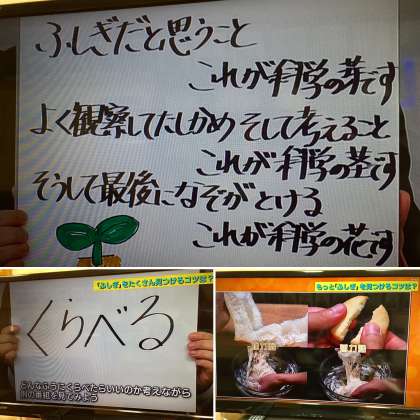 ふしぎだと思うこと
これが科学の芽です
よく観察してたしかめ そして考えること
これが科学の茎です
そうして最後になぞがとける
これが科学の花です
「ふしぎ」をたくさん見つけるコツは?
くらべる
どんなふうにくらべたらいいのか考えながら
別の番組を見てみよう
もっと「ふしぎ」を見つけるコツは?
薄力粉